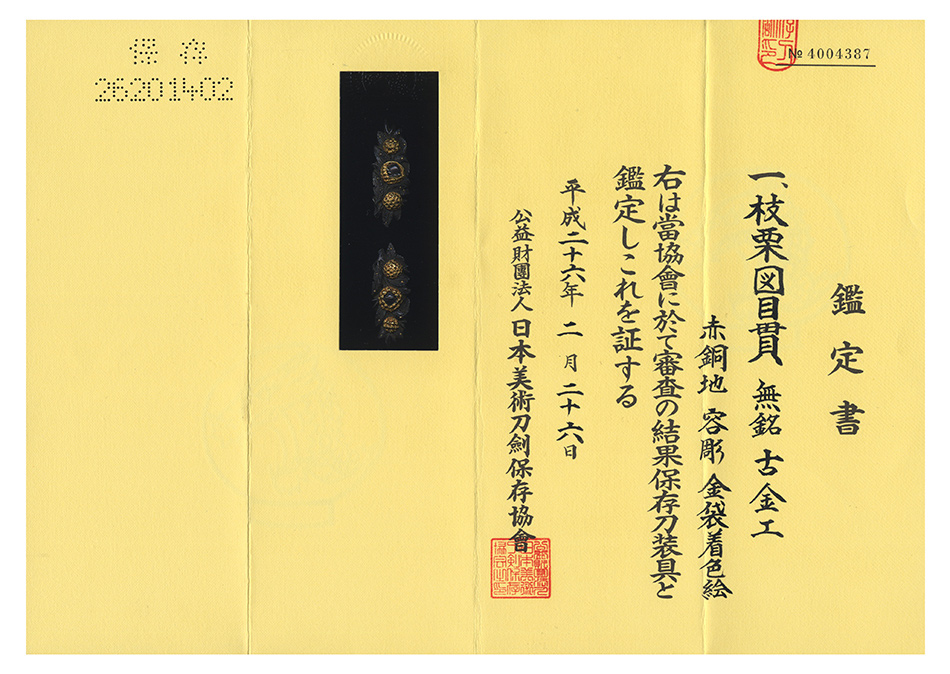 № 4004387
鑑定書
一、枝栗図目貫 無銘 古金工
赤銅地 容彫 金袋着色絵
右は當協會に於て審査の結果保存刀装具と
鑑定しこれを証する
平成二十六年 二月 二十六日
公益財團法人 日本美術刀劍保存協會
保存
26201402